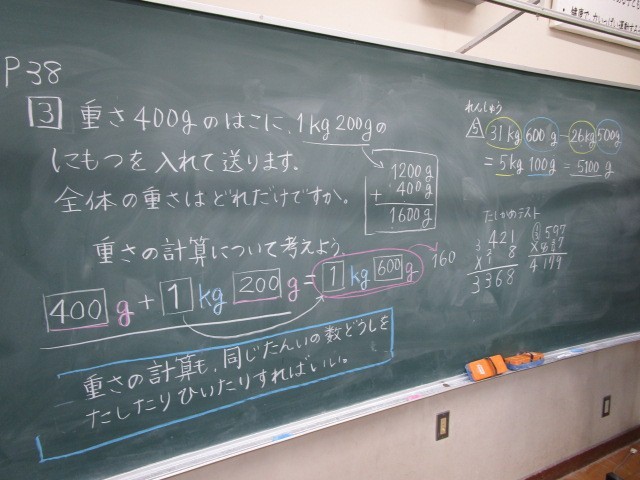 P38
3 重さ400gのはこに、1kg200gの
にもつを入れて送ります。
全体の重さはどれだけですか。
1200g
+ 400g
1600g
重さの計算について考えよう。
400g+1kg200g=1kg600g
160
重さの計算も、同じたんいの数どうしを
たしたりひいたりすればいい。
れんしゅう
5 31kg600g-26kg500g
=5kg100g=5100g
たしかめテスト
421
8
3368
597